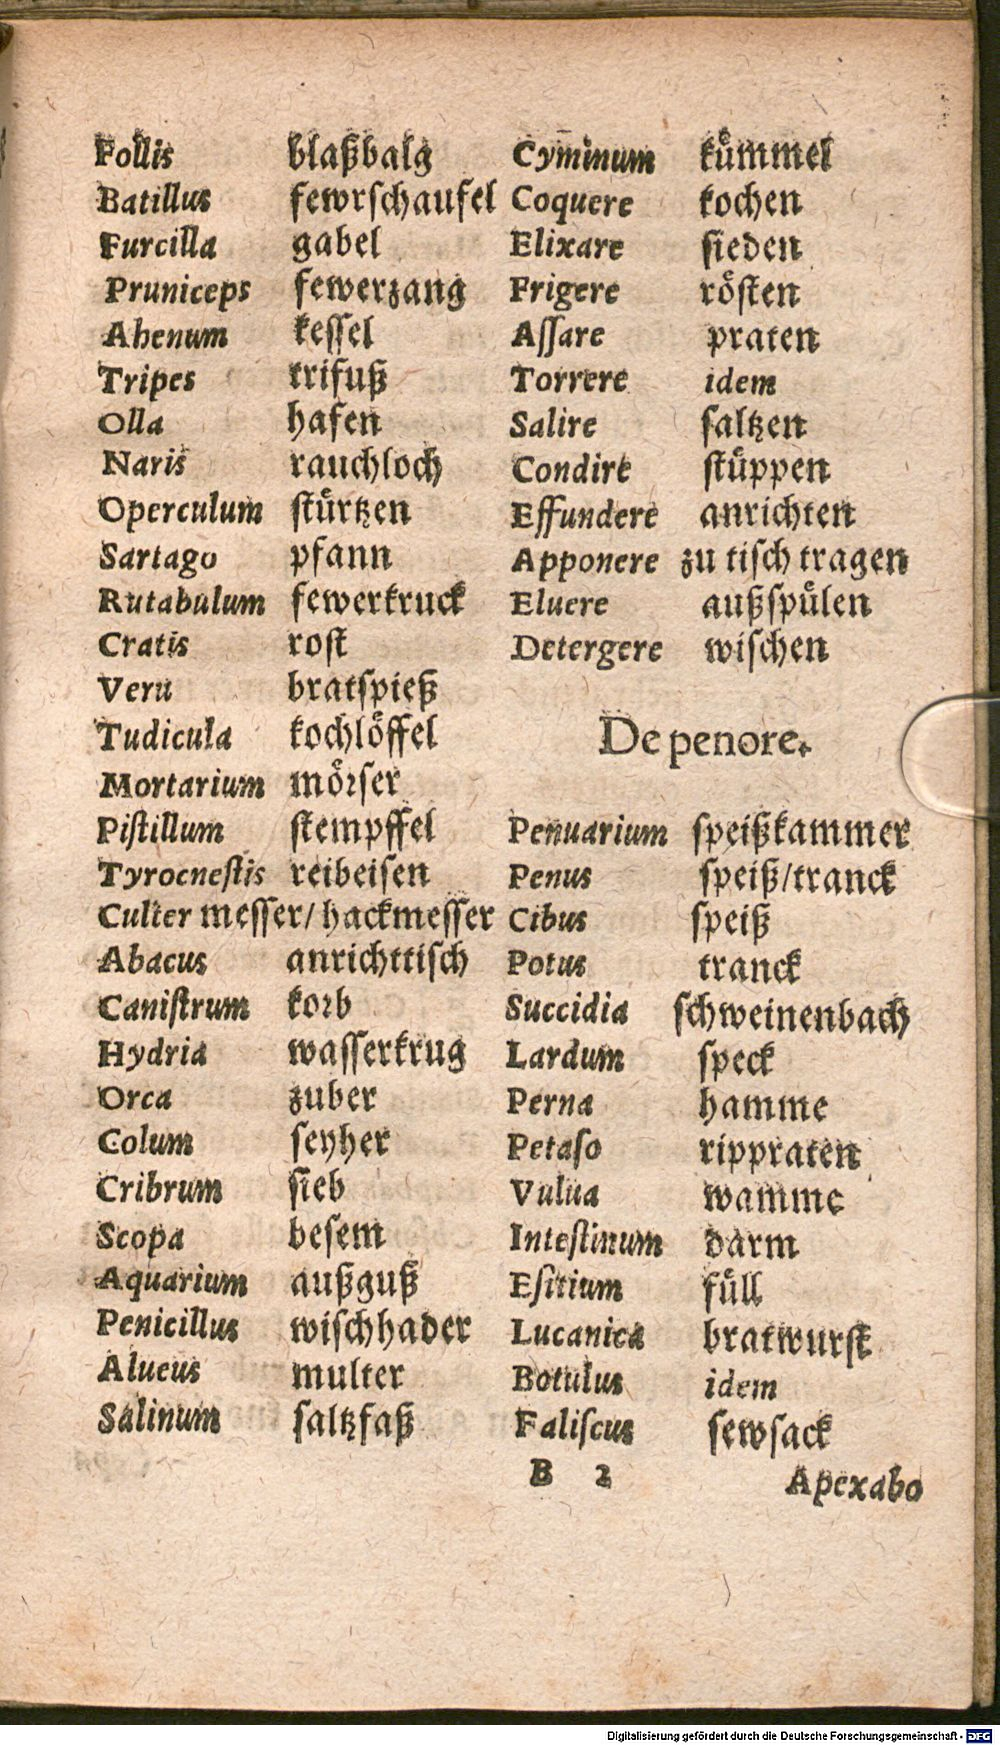 Follis blaßbalg
Batillus fewrschaufel
Furcilla gabel
Pruniceps fewerzang
Ahenum kessel
Tripes trifuß
Olla hafen
Naris rauchloch
Operculum stürtzen
Sartago pfann
Rutabulum fewerkruck
Cratis rost
Veru bratspieß
Tudicula kochlöffel
Mortarium mörser
Pistillum stempffel
Tyrocnestis reibeisen
Culter messer/ hackmesser
Abacus anrichttisch
Canistrum korb
Hydria wasserkrug
Orca zuber
Colum seyher
Cribrum sieb
Scopa besem
Aquarium außguß
Penicillus wischhader
Alueus multer
Salinum saltzfaß
Cyminum kümmel
Coquere kochen
Elixare sieden
Frigere rösten
Assare praten
Torrere idem
Salire saltzen
Condire stüppen
Effundere anrichten
Apponere zu tisch tragen
Eluere außspülen
Detergere wischen
De penore.
Penuarium speißkammer
Penus speiß/tranck
Cibus speiß
Potus tranck
Succidia schweinenbach
Lardum speck
Perna hamme
Petaso rippraten
Vulua wamme
Intestinum darm
Esitium füll
Lucanica bratwurst
Botulus idem
Faliscus sewsack
B 2 Apexabo
Digitalisierung gefördert durch die Deutsche Forschungsgemeinschaft - DFG